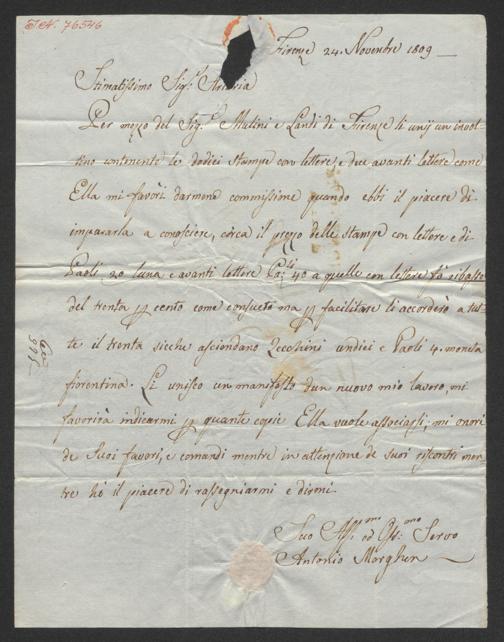 I.N. 76546
Firenze 24. Novembre 1809
Stimatissimo Sig:r Artaria
Per mezzo del Sig:r Mulini e Landi di Firenze li unij un invol-
tino contenente le dodici stampe con lettere, e due avanti lettere come
Ella mi favorì darmene commissione quando ebbi il piacere di
impararla a conosciere, circa il prezzo delle stampe con lettere e di
Paoli 20 luna e avanti lettere Pa:li 40 a quelle con lettere fò ribasso
del trenta p cento come consueto ma p facilitare li accorderò a tut-
te il trenta sicche asciendano Zecchini undici e Paoli 4. moneta
fiorentina. Li unisco un manifesto dun nuovo mio lavoro, mi
favorirà indicarmi p quante copie Ella vuole associarsi, mi onori
de Suoi favori, e comandi mentre in attenzione de suoi riscontri men-
tre hò il piacere di rassegniarmi e dirmi.
Suo Aff:mo ed Obb:mo Servo
Antonio Morghen